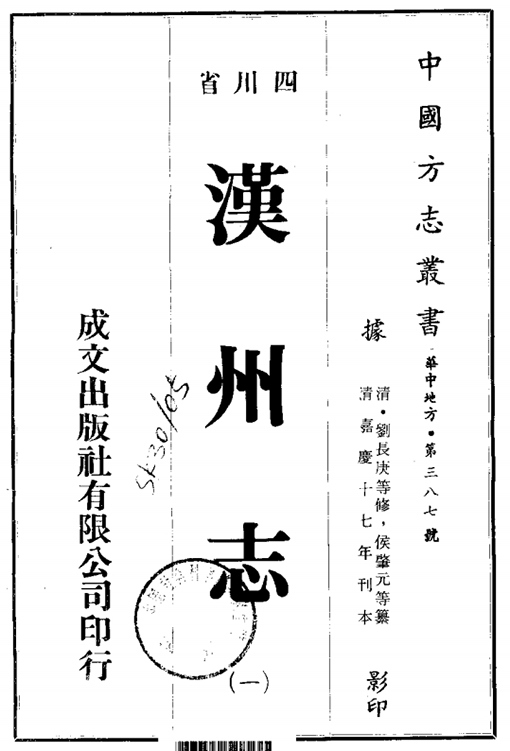 中國方志叢書・華中地方・第三八七號
據
清・劉長庚等修，侯肇元等纂
清嘉慶十七年刊本
影印
四川省
漢州志
(一)
SK30/05
成文出版社有限公司印行